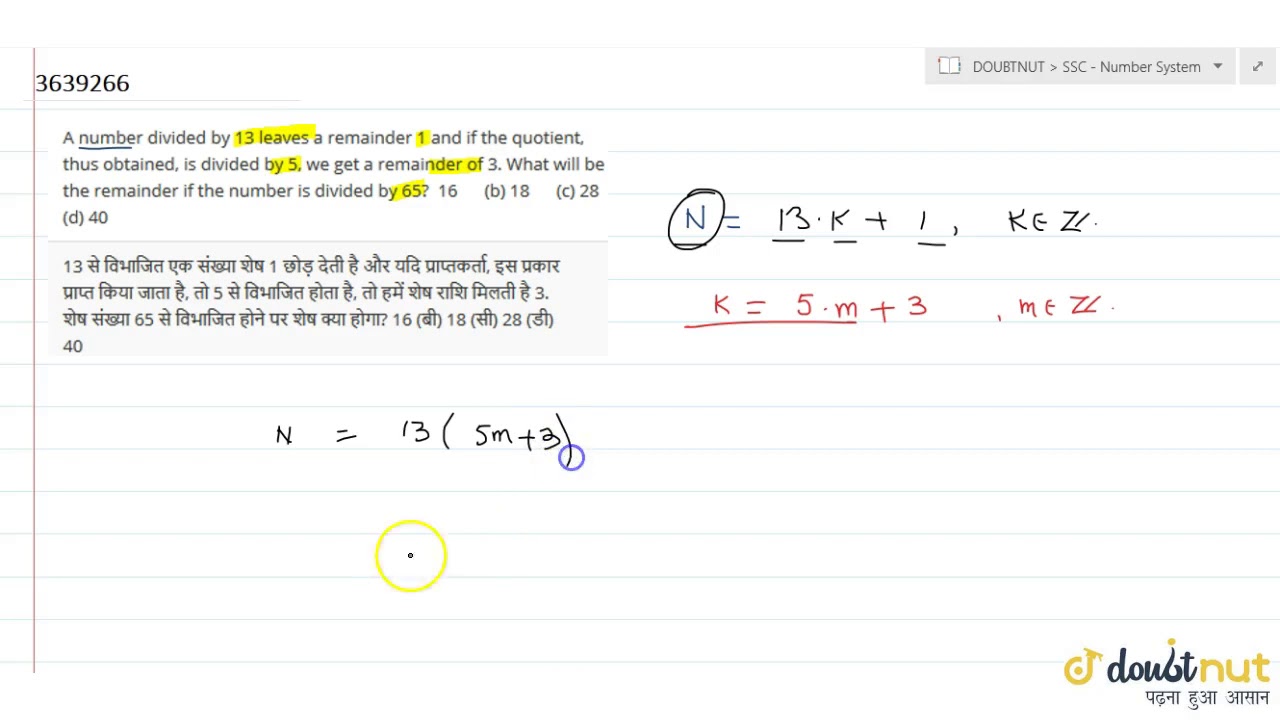 DOUBTNUT > SSC - Number System
3639266
A number divided by 13 leaves a remainder 1 and if the quotient,
thus obtained, is divided by 5, we get a remainder of 3. What will be
the remainder if the number is divided by 65? 16 (b) 18 (c) 28
(d) 40
13 से विभाजित एक संख्या शेष 1 छोड़ देती है और यदि प्राप्तकर्ता, इस प्रकार
प्राप्त किया जाता है, तो 5 से विभाजित होता है, तो हमें शेष राशि मिलती है 3.
शेष संख्या 65 से विभाजित होने पर शेष क्या होगा? 16 (बी) 18 (सी) 28 (डी)
40
N = 13 · K + 1 , K ∈ ℤ.
K = 5 · m + 3 , m ∈ ℤ.
N = 13 ( 5m + 3)
doubtnut
पढ़ना हुआ आसान